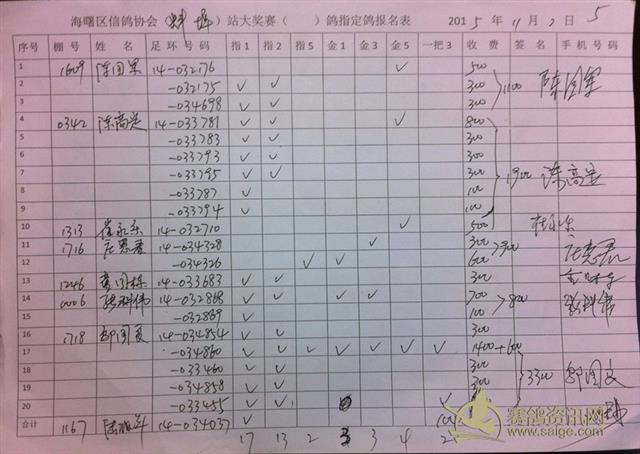 海曙区信鸽协会（ ）站大奖赛（ ）鸽指定鸽报名表 2015年11月2日 5
序号 棚号 姓名 足环号码 指1 指2 指5 金1 金3 金5 一把3 收费 签名 手机号码
1 1609 陈国军 14-032176 ✓ 500
2 -032175 ✓ ✓ 300 1100 陈国军
3 -034698 ✓ ✓ 300
4 0342 陈高定 14-033781 ✓ ✓ ✓ 800
5 -033783 ✓ ✓ 300
6 -033793 ✓ ✓ 300
7 -033795 ✓ ✓ 300 1900 陈高定
8 -033787 ✓ 100
9 -033794 ✓ 100
10 1313 14-032710 ✓ 500
11 1716 14-034328 ✓ 300 900
12 -034326 ✓ ✓ 600
13 1246 14-033683 ✓ ✓ 300
14 0006 14-032868 ✓ ✓ ✓ ✓ 700 800
15 -032869 ✓ 100
16 1718 14-034854 ✓ ✓ 300
17 -034860 ✓ ✓ ✓ ✓ ✓ ✓ ✓ 1400+600
18 -033460 ✓ ✓ 300 3300
19 -034858 ✓ ✓ 300
20 -033455 ✓ ✓ ✓
合计 1167 14-034037 ✓ 100
17 13 2 3 3 4 2
赛鸽资讯网
www.saige.com